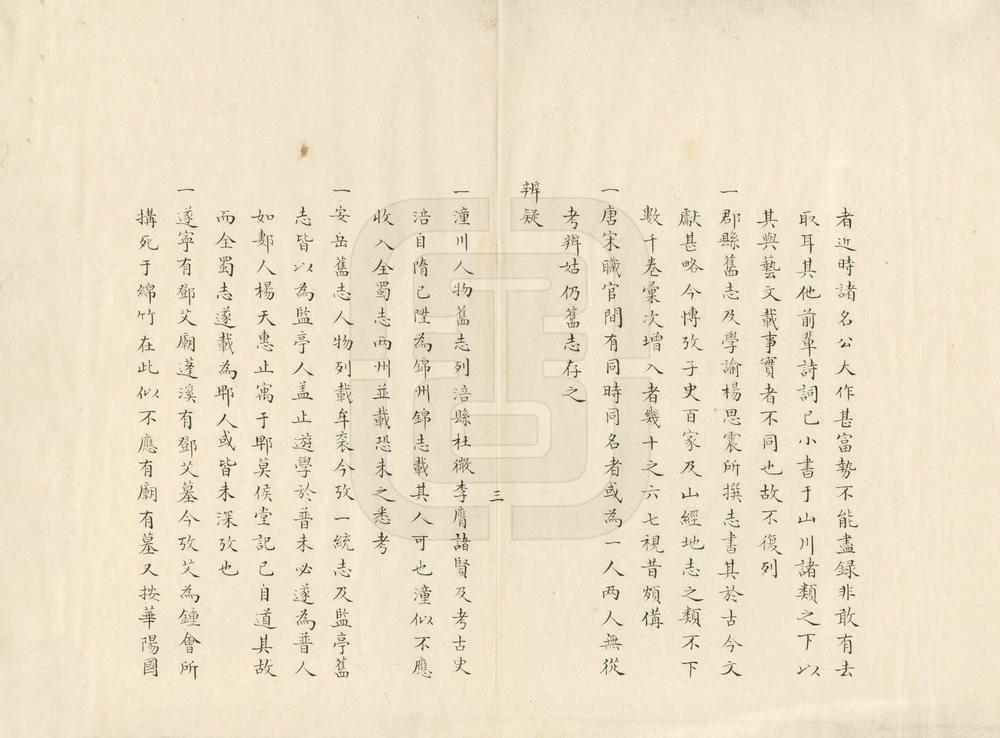 者近時諸名公大作甚富勢不能盡録非敢有去
取耳其他前輩詩詞已小書于山川諸類之下以
其與藝文載事實者不同也故不復列
一郡縣舊志及學諭楊思震所撰志書其於古今文
獻甚略今博攷子史百家及山經地志之類不下
數千卷彙次增入者幾十之六七視昔頗備
一唐宋職官間有同時同名者或為一人兩人無從
考辨姑仍舊志存之
辨疑
一潼川人物舊志列涪縣杜微李膺諸賢及考古史
涪自隋已陞為錦州錦志載其人可也潼似不應
收入全蜀志兩州並載恐未之悉考
一安岳舊志人物列載牟衮今攷一統志及監亭舊
志皆以為監亭人盖止遊學於普未必遂為普人
如郪人楊天惠止寓于郫莫侯堂記已自道其故
而全蜀志遂載為郫人或皆未深攷也
一遂寧有鄧艾廟蓬溪有鄧艾墓今攷艾為鍾會所
搆死于綿竹在此似不應有廟有墓又按華陽國
三